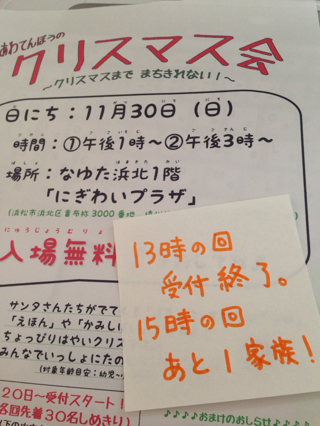 あわてんぼうの
クリスマス会
～クリスマスまで まちきれない！～
日にち：11月30日（日）
時間：①午後1時～②午後3時～
場所：なゆた浜北1階
「にぎわいプラザ」
（浜松市浜北区貴布祢3000番地
入場無料
13時の回
受付終了。
15時の回
あと1家族！
サンタさんたちがでて
「えほん」や「かみし
ちょっぴりはやいクリス
みんなでいっしょにたの
（対象年齢目安：幼児～
20日～受付スタート！
各回先着30名しめきり）
♪♪♪♪♪おまけのおしらせ♪♪